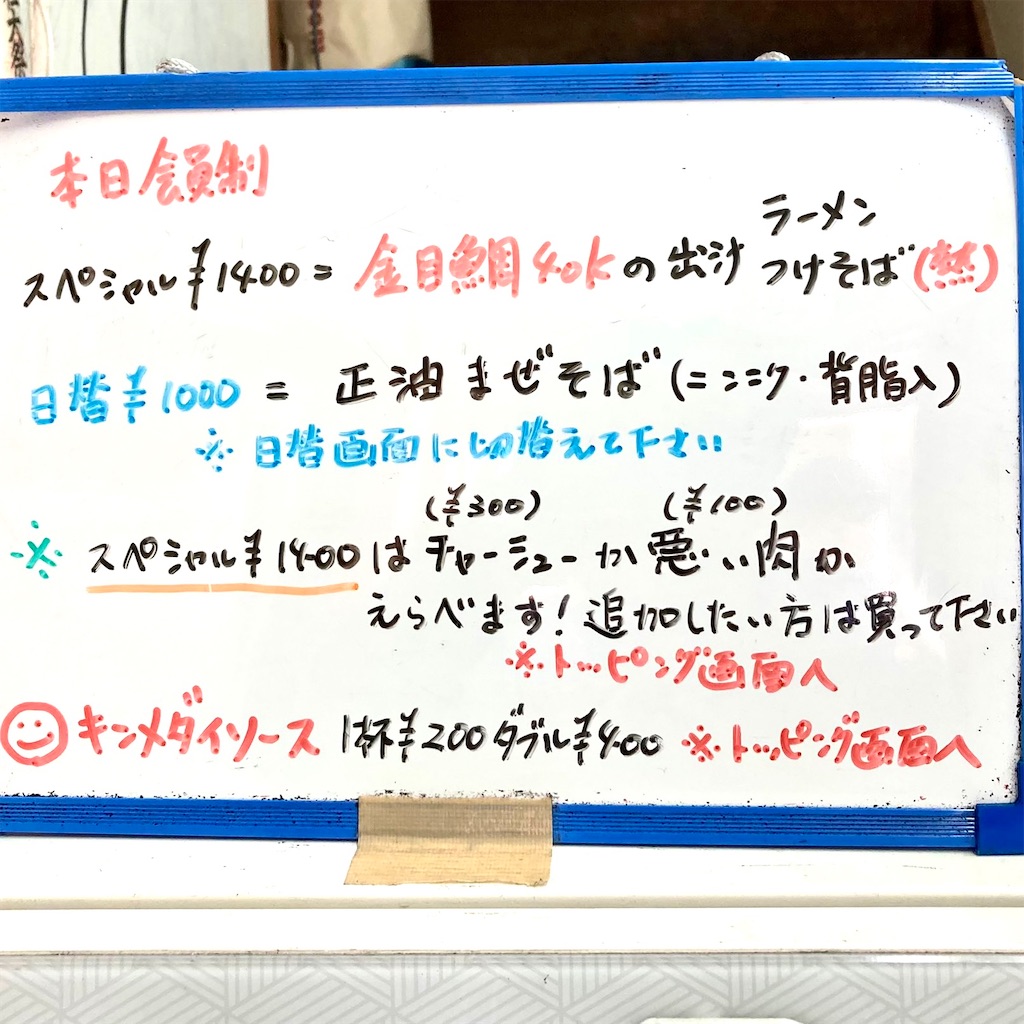 本日会員制
ラーメン
スペシャル¥1400=金目鯛40Kの出汁 つけそば(熱)
日替¥1000=正油まぜそば(ニンニク・背脂入)
※日替画面に切替えて下さい
(¥300) (¥100)
※スペシャル¥1400はチャーシューか悪い肉か
えらべます!追加したい方は買って下さい
※トッピング画面へ
キンメダイソース 1杯¥200ダブル¥400 ※トッピング画面へ